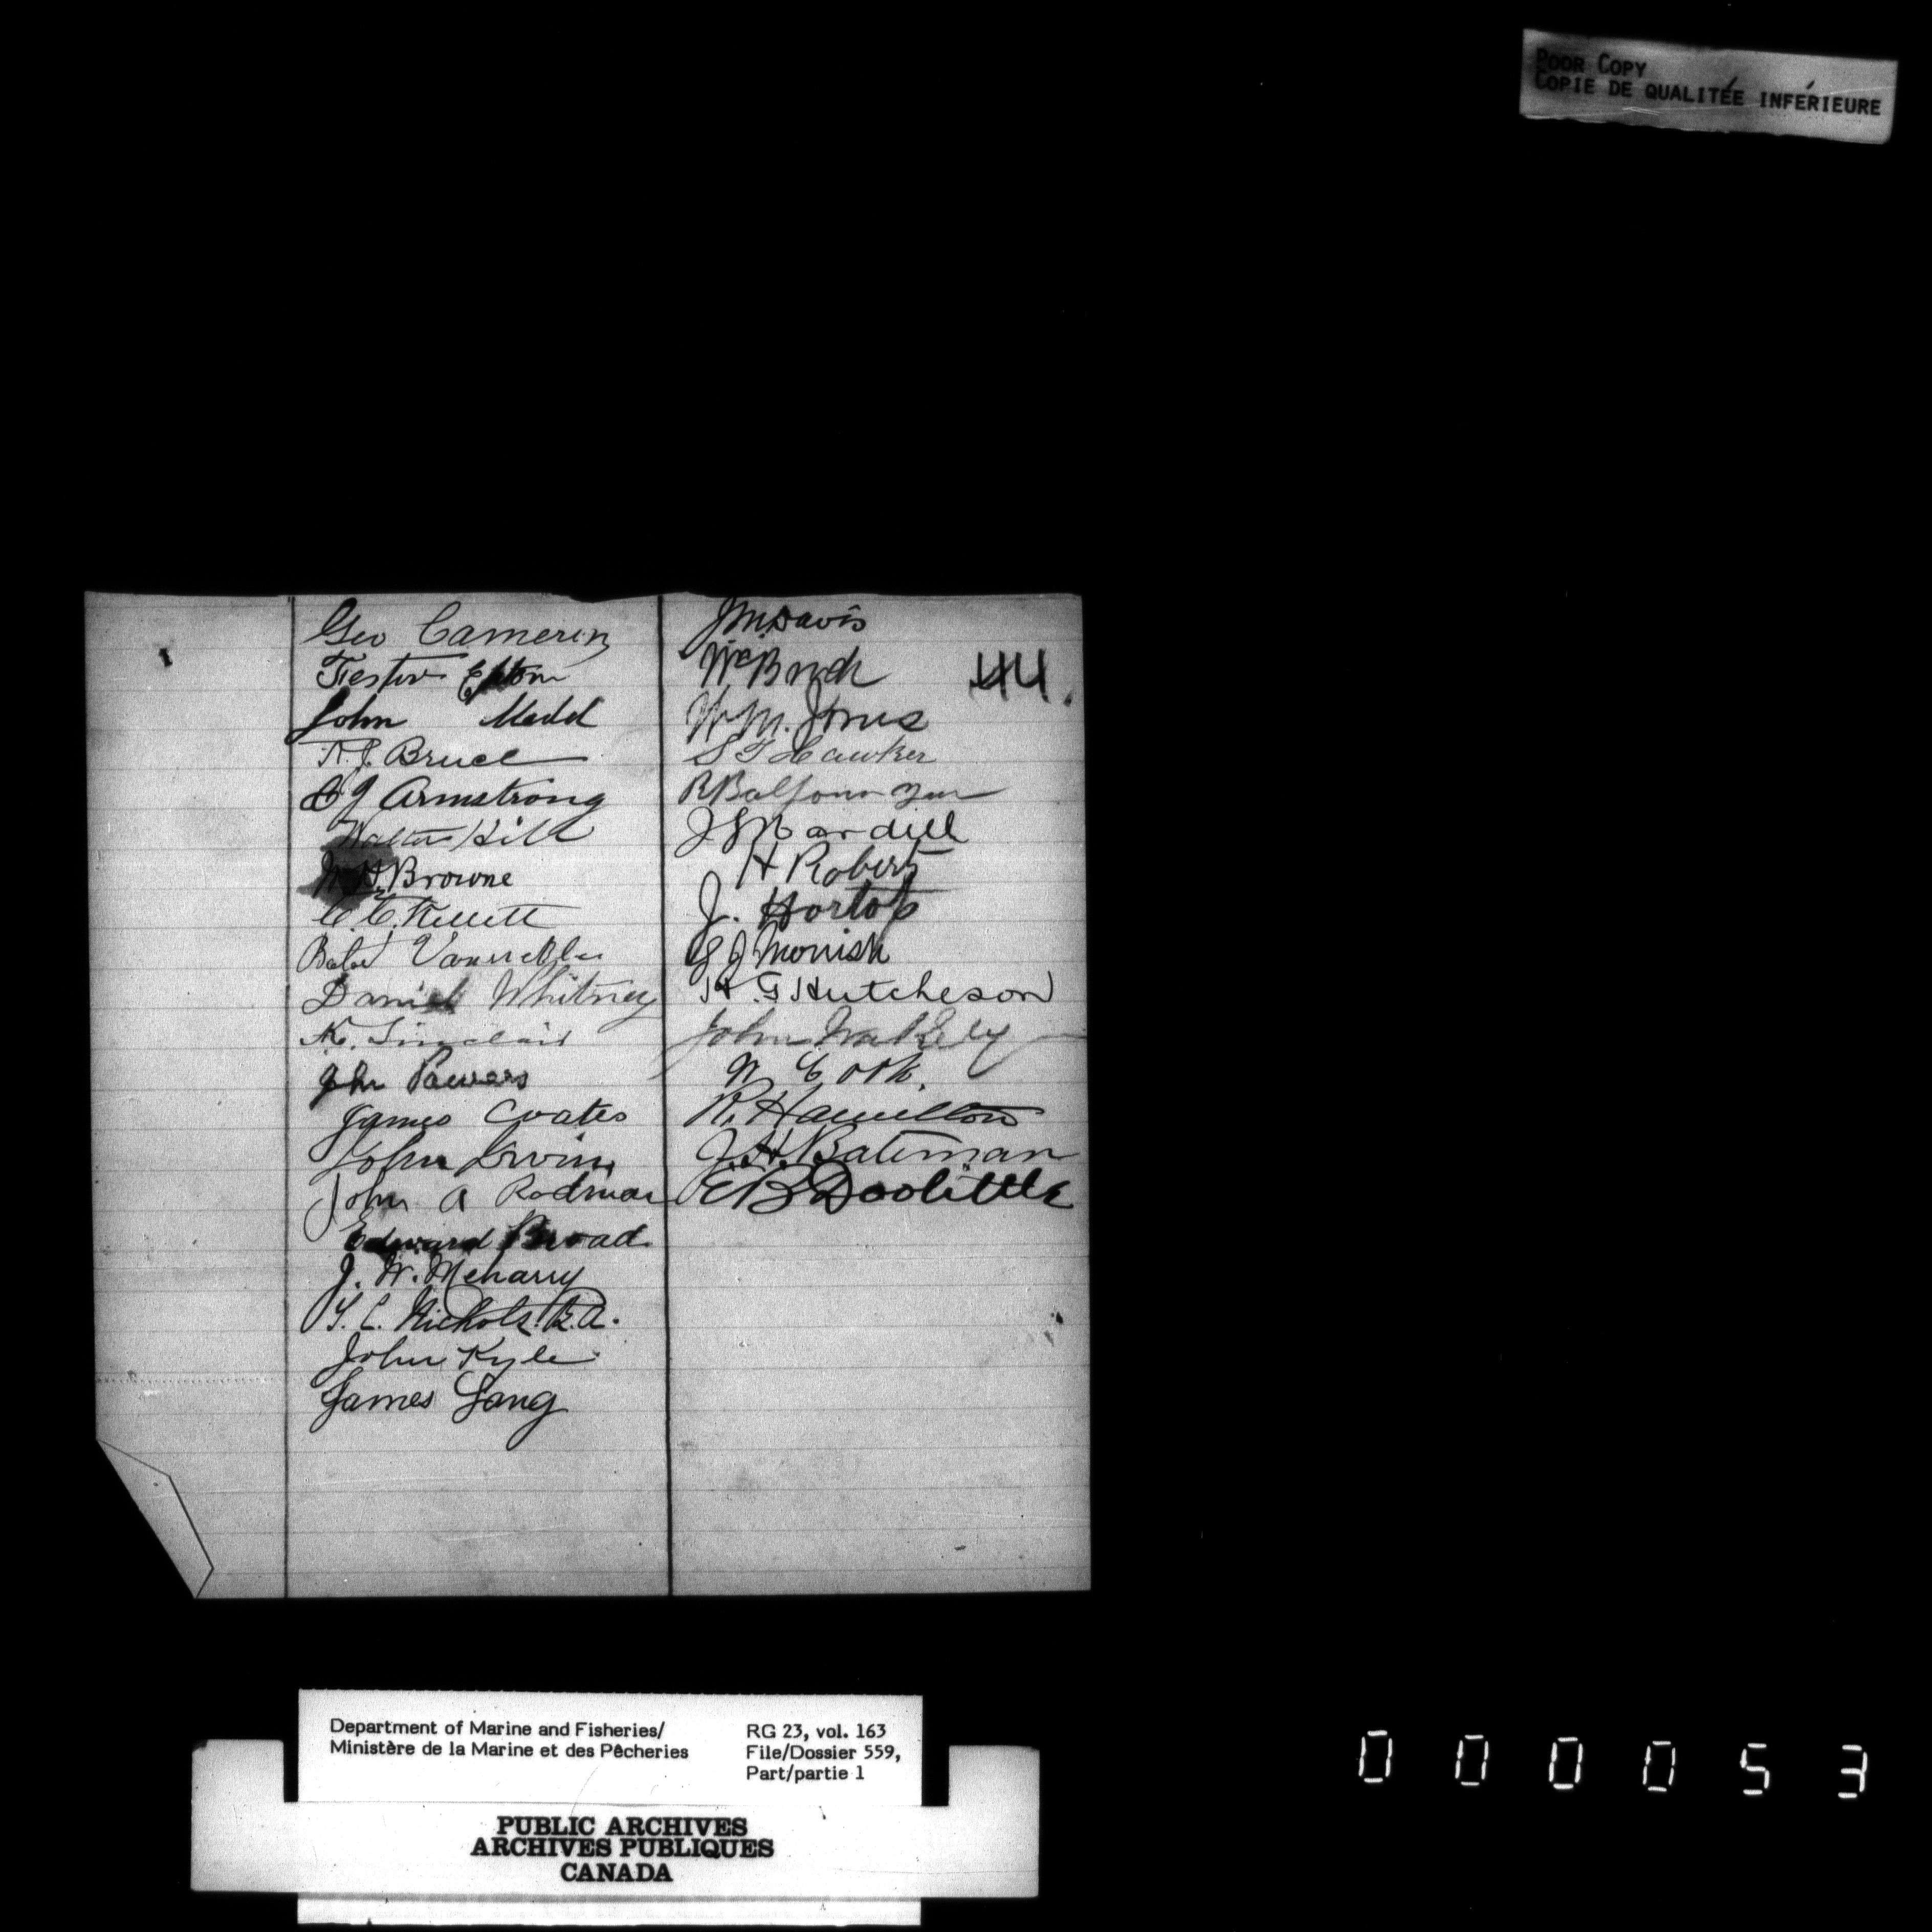 POOR COPY
COPIE DE QUALITÉE INFÉRIEURE
Geo Cameren
John Medd
T. J. Bruce
Armstrong
Walter Hill
W H. Browne
C. C. Kellett
Daniel Whitney
K. Sinclair
Jhn Powers
James Coates
John Irvin
John A Rodman
Edward Broad
J. W. Meharry
T. C. Nichols. B.A.
John Kyle
James Lang
J M Davis
44.
W. M. Jones
S T Hawker
R Balfour
H Roberts
J. Hortop
J Morrish
H. G Hutcheson
John Wakely
W Cook.
R. Hamilton
J. H. Bateman
E B Doolittle
Department of Marine and Fisheries/
Ministère de la Marine et des Pêcheries
RG 23, vol. 163
File/Dossier 559,
Part/partie 1
PUBLIC ARCHIVES
ARCHIVES PUBLIQUES
CANADA
000053